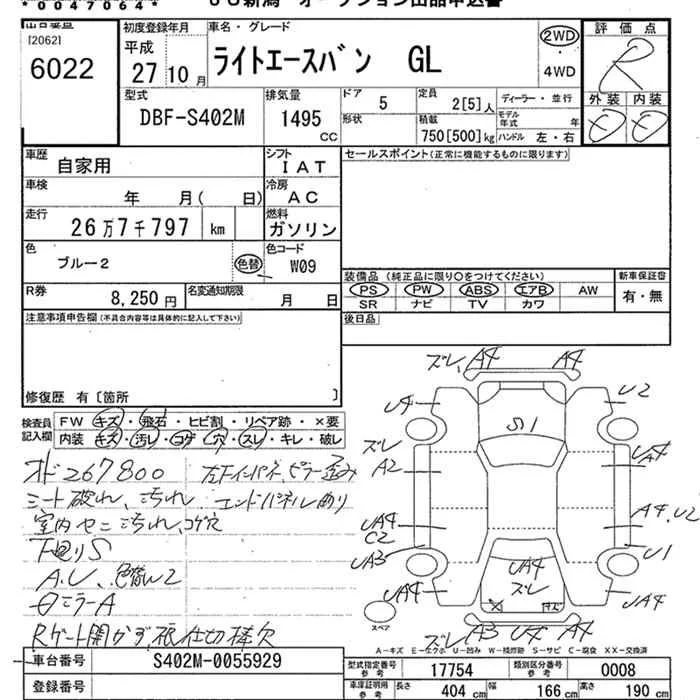 *0047064*
JU新潟 オークション出品申込書
出品番号
[2062]
6022
初度登録年月
平成
27 10 月
車名・グレード
ライトエースバン GL
2WD
・
4WD
評価点
R
外装 内装
D D
型式
DBF-S402M
排気量
1495
CC
ドア
5
形状
定員
2[5]人
積載
750[500]kg
ディーラー・並行
モデル年式 年
ハンドル 左・右
車歴
自家用
シフト
IAT
セールスポイント(正常に機能するものに限ります)
車検
年 月( 日)
冷房
AC
走行
26万7千797 km
燃料
ガソリン
色
ブルー2
色替
色コード
W09
R券
8,250円
名変通知期限
月 日
装備品(純正品に限り○をつけてください)
新車保証書
PS PW ABS エアB AW
SR ナビ TV カワ
有・無
後日品
注意事項申告欄(不具合内容等は具体的に記入して下さい)
修復歴 有[箇所 ]
検査員記入欄
FW キズ・飛石・ヒビ割・リペア跡・×要
内装 キズ・汚レ・コゲ・穴・スレ・キレ・破レ
オド267800 左下インパネ、ピラー歪み
シート破れ、汚れ エンドパネル曲り
室内セニ汚れ、コゲ穴
下廻りS
A.U、色替ムラ
ミラーA
Rゲート開かず、 仕切棒欠
ズレ A4 A4
U4
U2
S1
ズレ
A2
UA4
UA4
C2
A4、U2
UA3
U1
UA4
ズレ
UA4
UA4
スペア
ズレ A3 U4 A4
A-キズ E-エクボ U-凹み W-補修跡 S-サビ C-腐食 XX-交換済
車台番号
S402M-0055929
登録番号
型式指定番号
参考
17754
類別区分番号
参考
0008
車庫証明用
参考
長さ
404 cm
幅
166 cm
高さ
190 cm